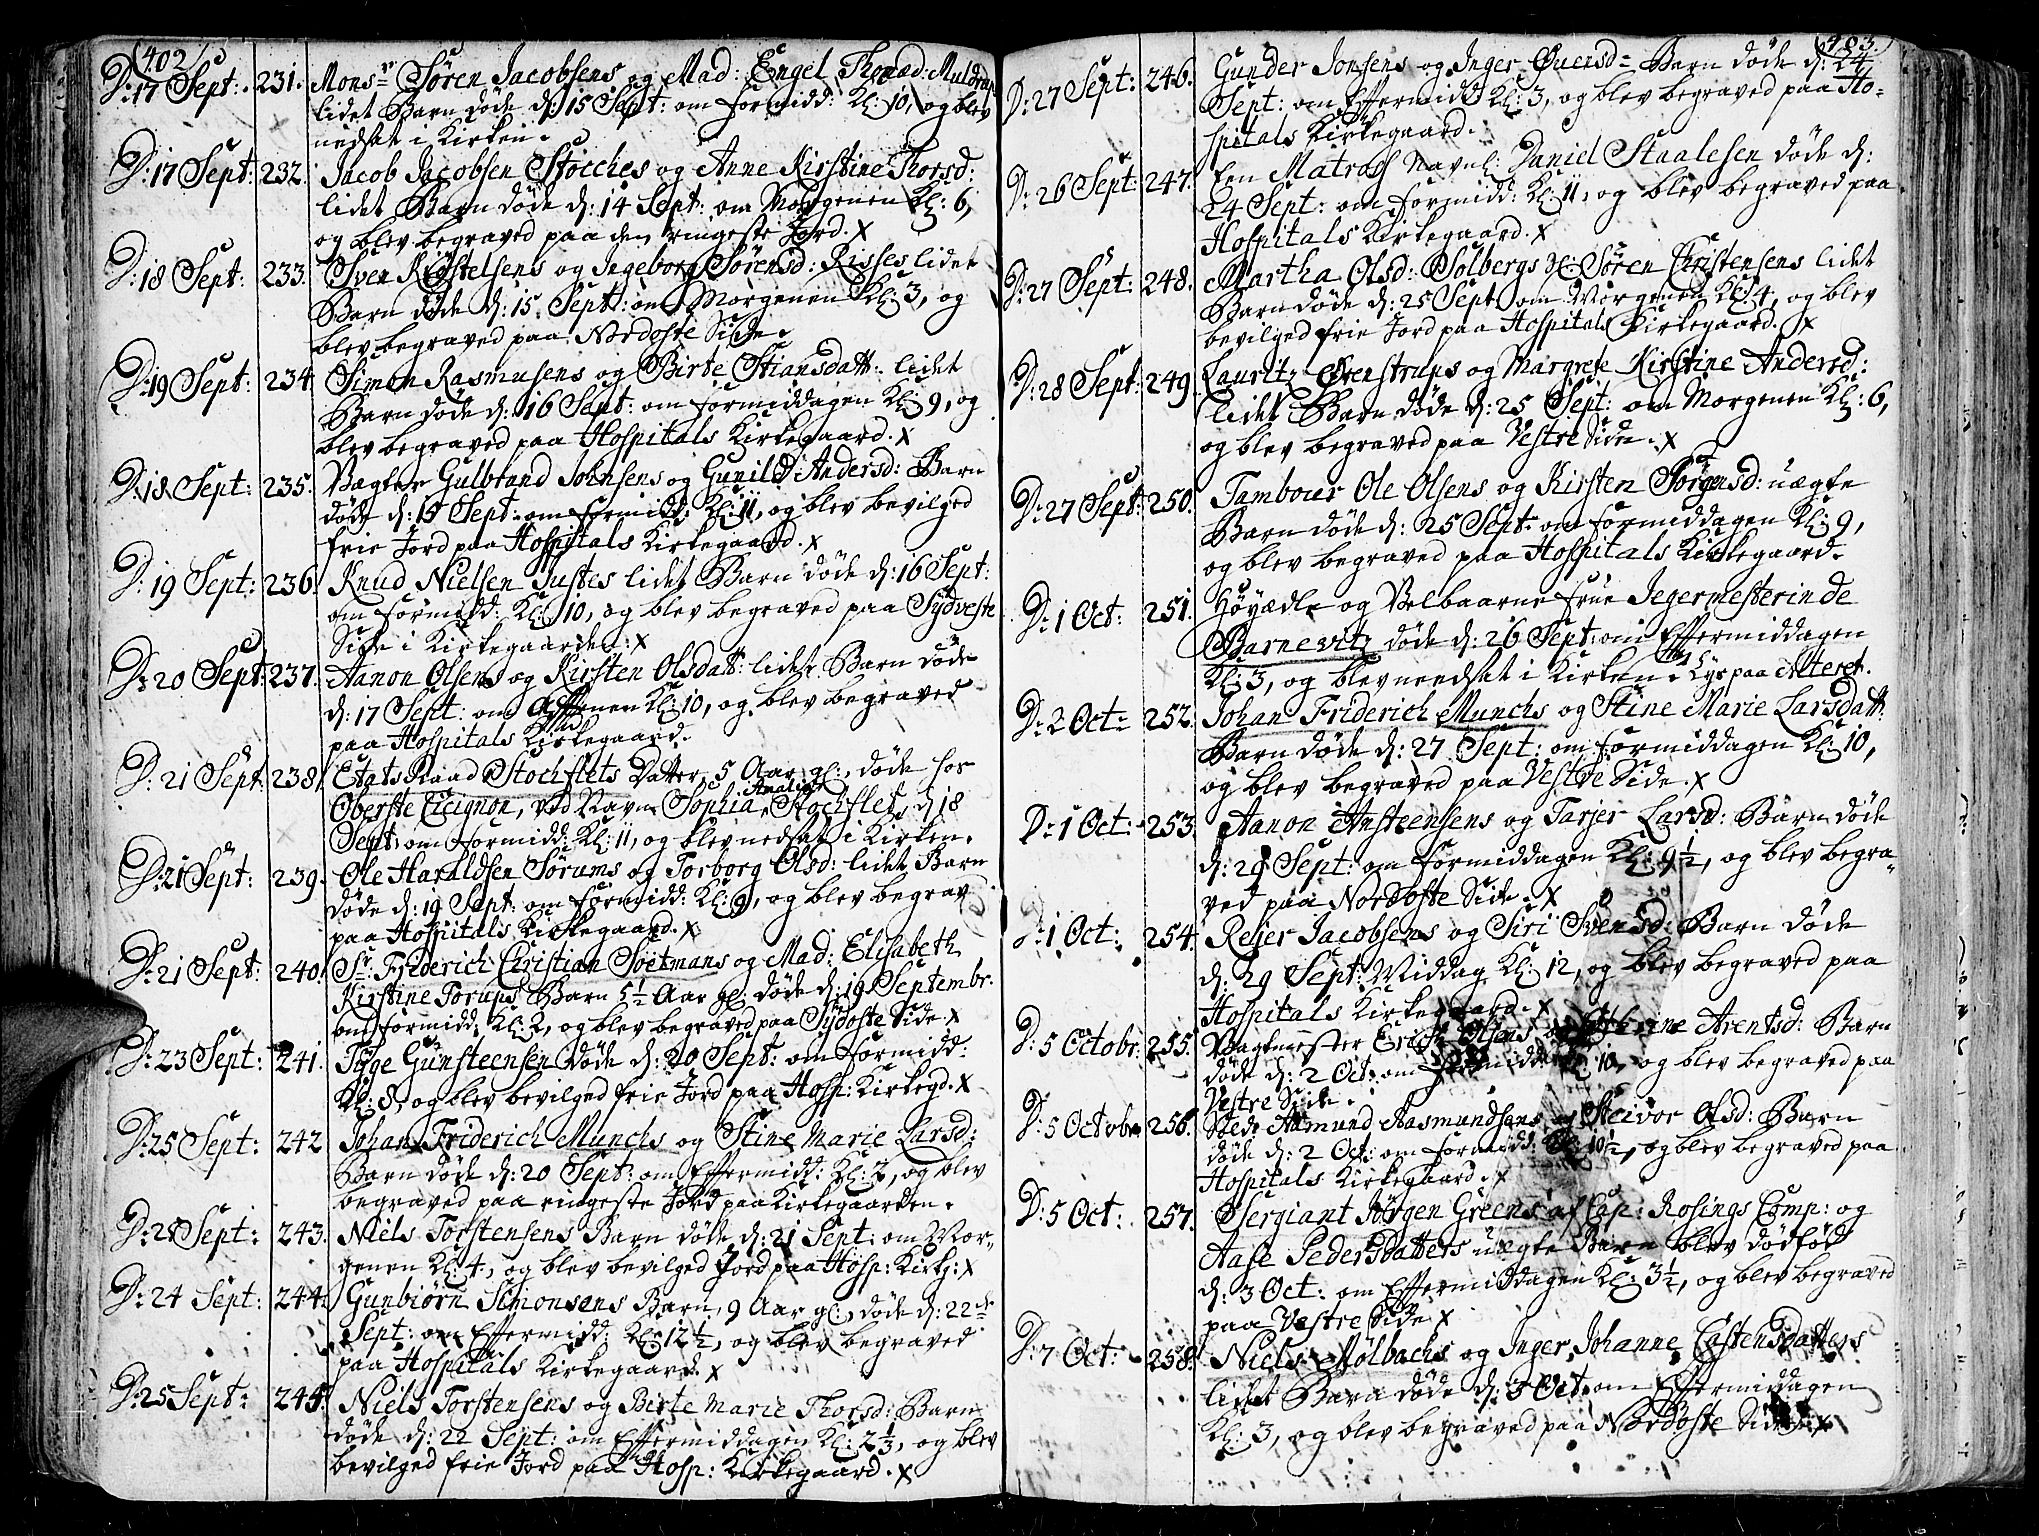 402
D: 17 Sept: 231. Mons:r Søren Jacobsens og Mad: Engel Muldrup
lidet Barn døde d: 15 Sept: om formidd: Kl: 10, og blev
nedsat i Kirken.
D: 17 Sept: 232. Jacob Jacobsen Støcches og Anne Kirstine Thorsd:
lidet Barn døde d: 14 Sept: om Morgenen Kl: 6,
og blev begraved paa den ringeste Jord. X
D: 18 Sept: 233. Sven Kiøstelsens og Ingeborg Sørensd: Risses lidet
Barn døde d: 15 Sept: om Morgenen Kl: 3, og
blev begraved paa Nordoste Side.
D: 19 Sept: 234 Simon Rasmusens og Birte Stiansdatt: lidet
Barn døde d: 16 Sept: om formiddagen Kl: 9, og
blev begraved paa Hospitals Kirkegaard. X
D: 18 Sept: 235. Vægter Gulbrand Johnsens og Gunild Andersd: Barn
døde d: 15 Sept: om formidd: Kl: 11, og blev bevilged
frie Jord paa Hospitals Kirkegaard. X
D: 19 Sept: 236. Knud Nielsen Justes lidet Barn døde d: 16 Sept:
om formidd: Kl: 10, og blev begraved paa Sydveste
Side i Kirkegaarden: X
D: 20 Sept: 237. Aanon Olsens og Kirsten Olsdatt: lidet Barn døde
d: 17 Sept: om Afftenen Kl: 10, og blev begraved
paa Hospitals Kirkegaard.
D: 21 Sept 238. Etats Raad Stochflets Datter, 5 Aar gl:, døde hos
Oberste Cicignon, ved Navn Sophia Amalia Stochflet, d 18
Sept: om formidd: Kl: 11, og blev nedsat i Kirken.
D: 21 Sept: 239. Ole Haraldsen Sørums og Torborg Olsd: lidet Barn
døde d: 19 Sept: om formidd: Kl: 9, og blev begrav
paa Hospitals Kirkegaard. X
D: 21 Sept: 240. Sr: Friderich Christian Søetmans og Mad: Elisabeth
Kirstine Torups Barn 5½ Aar gl: døde d: 19 Septembr.
om formidd: Kl: 2, og blev begraved paa Sydoste Side. X
D: 23 Sept: 241. Tyge Gunsteensen døde d: 20 Sept: om formidd:
Kl: 8, og blev bevilged frie Jord paa Hosp: Kirkegd. X
D: 25 Sept: 242 Johan Friderich Munchs og Stine Marie Larsd:
Barn døde d: 20 Sept: om Effermidd: Kl: 3, og blev
begraved paa ringeste Jord paa Kirkegaarden.
D: 21 Sept: 243. Niels Torstensens Barn døde d: 21 Sept: om Mor-
genen Kl: 4, og blev bevilged Jord paa Hosp: Kirkg: X
D: 24 Sept: 244. Gunbiørn Simonsens Barn, 9 Aar gl:, døde d: 22de
Sept: om Effermidd: Kl: 12½, og blev begraved
paa Hospitals Kirkegaard. X
D: 25 Sept: 245. Niels Torstensens og Birte Marie Thorsd: Barn
døde d: 22 Sept: om Effermiddagen Kl: 2⅓, og blev
bevilged frie Jord paa Hosp: Kirkegaard. X
403.
D: 27 Sept: 246. Gunder Jonsens og Inger Ouersd: Barn døde d: 24
Sept: om Effermidd Kl: 3, og blev begraved paa Ho-
spitals Kirkegaard.
D: 26 Sept: 247. Een Matros Navnl: Daniel Staalesen døde d:
24 Sept: om formidd: Kl: 11, og blev begraved paa
Hospitals Kirkegaard. X
D: 27 Sept: 248. Martha Olsd: Solbergs og Søren Christensens lidet
Barn døde d: 25 Sept om Morgenen Kl: 4, og blev
bevilged frie Jord paa Hospitals Kirkegaard. X
D: 28 Sept: 249. Lauritz Ørenstrups og Margrete Kirstine Andersd:
lidet Barn døde d: 25 Sept: om Morgenen Kl: 6,
og blev begraved paa Vestre Side. X
D: 27 Sept: 250. Tambour Ole Olsens og Kirsten Jørgensd: uægte
Barn døde d: 25 Sept: om formiddagen Kl: 9,
og blev begraved paa Hospitals Kirkegaard.
D: 1 Oct: 251. Høyædle og Velbaarne frue Jegermesterinde
Barnevitz døde d: 26 Sept: om Effermiddagen
Kl: 3, og blev needsat i Kirken. Lys paa Alteret.
D: 2 Oct: 252. Johan Friderich Munchs og Stine Marie Larsdatt:
Barn døde d: 27 Sept: om formiddagen Kl: 10,
og blev begraved paa Vestre Side. X
D: 1 Oct: 253. Aanon Ansteensens og Tarjer Larsd: Barn døde
d: 29 Sept: om formiddagen Kl: 9½, og blev begra-
ved paa Nordoste Side. X
D: 1 Oct: 254. Reijer Jacobsens og Siri Svensd: Barn døde
d: 29 Sept: Middag Kl: 12, og blev begraved paa
Hospitals Kirkegaard. X
D: 5 Octobr: 255. Vagtmester Erich Olsens og Cathrine Arentsd: Barn
døde d: 2 Oct: om formidd: Kl: 10, og blev begraved paa
Vestre Side.
D: 5 Octobr 256. Aamund Aasmundsens og Steivor Olsd: Barn
døde d: 2 Oct: om formidd: Kl: 10½, og blev begraved paa
Hospitals Kirkegaard. X
D: 5 Oct: 257. Sergiant Jørgen Greens af Cap: Rosings Comp: og
Aase Pedersdatters uægte Barn blev dødfød
d: 3 Oct: om Effermiddagen Kl: 3½, og blev begraved
paa Vestre Side X
D: 7 Oct: 258. Niels Mølbachs og Inger Johanne Castensdatters
lidet Barn døde d: 3 Oct: om Effermiddagen
Kl: 3, og blev begraved paa Nordoste Side. X